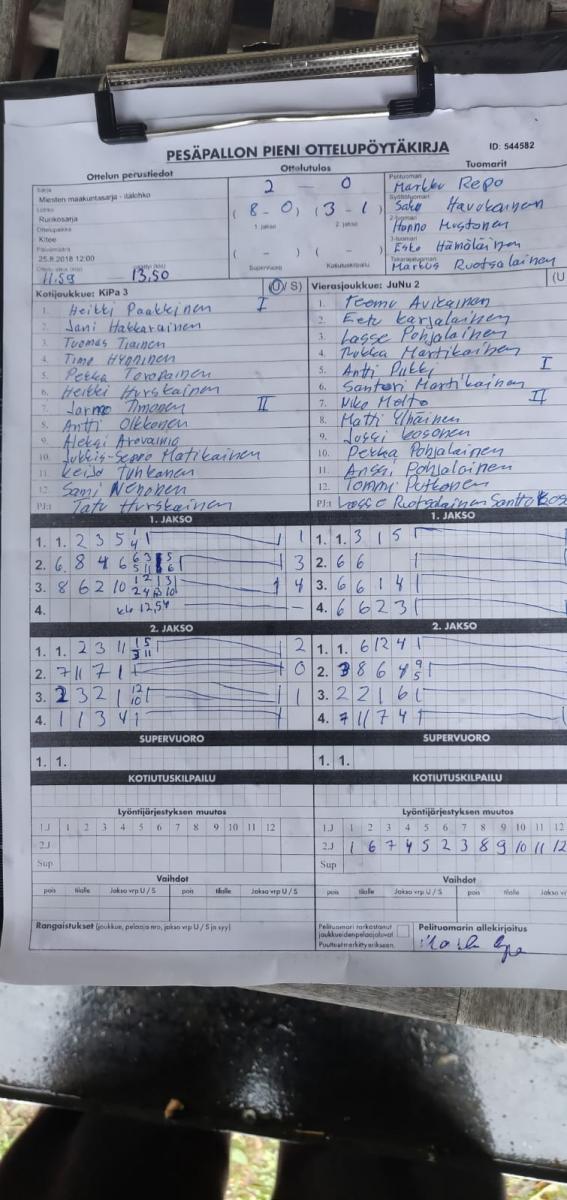 PESÄPALLON PIENI OTTELUPÖYTÄKIRJA ID: 544582
Ottelun perustiedot
Sarja
Miesten maakuntasarja - itälohko
Lohko
Runkosarja
Ottelupaikka
Kitee
Päivämäärä
25.8.2018 12:00
11.59 13.50
Ottelutulos
2 - 0
( 8 - 0 ) ( 3 - 1
1. jakso 2. jakso
( - ) ( -
Supervuoro Kotiutuskilpailu
Tuomarit
Pelituomari
Markku Repo
Syöttötuomari
Saku Havukainen
2-tuomari
Hanno Mustonen
3-tuomari
Esko Hämäläinen
Takarajatuomari
Markus Ruotsalainen
Kotijoukkue: KiPa 3 (U/ S)
1. Heikki Paakkinen I
2. Jani Hakkarainen
3. Tuomas Tiainen
4. Timo Hynninen
5. Pekka Toropainen
6. Heikki Hurskainen
7. Jarmo Timonen II
8. Antti Olkkonen
9. Aleksi
10. Matikainen
11. Keijo Tuhkanen
12. Sami Nenonen
PJ:t Tatu Hurskainen
Vierasjoukkue: JuNu 2 (U
1. Teemu Avikainen
2. Eetu Karjalainen
3. Lasse Pohjalainen
4. Martikainen
5. Antti Pukki I
6. Santeri Martikainen
7. Niko Malto II
8. Matti
9. Jussi Kosonen
10. Pekka Pohjalainen
11. Anssi Pohjalainen
12. Tommi Putkonen
PJ:t Lasse Ruotsalainen
1. JAKSO
1. 1. 2 3 5 1
2. 6 8 4 6 3
3. 8 6 2 10 4
4. klo 12.54 —
1. JAKSO
1. 1. 3 1 5
2. 6 6
3. 6 6 1 4
4. 6 6 2 3
2. JAKSO
1. 1. 2 3 11 2
2. 7 11 7 1 0
3. 2 3 2 1 1
4. 1 1 3 4
2. JAKSO
1. 1. 6 12 4
2. 3 8 6 4
3. 2 2 1 6
4. 7 11 7 4
SUPERVUORO
1. 1.
SUPERVUORO
1. 1.
KOTIUTUSKILPAILU
KOTIUTUSKILPAILU
Lyöntijärjestyksen muutos
1.J 1 2 3 4 5 6 7 8 9 10 11 12
2.J
Sup
Lyöntijärjestyksen muutos
1.J 1 2 3 4 5 6 7 8 9 10 11 12
2.J 1 6 7 4 5 2 3 8 9 10 11 12
Sup
Vaihdot
pois tilalle Jakso vrp U / S pois tilalle Jakso vrp U / S
Vaihdot
pois tilalle Jakso vrp U / S pois tilalle
Rangaistukset (joukkue, pelaaja nro, jakso vrp U / S ja syy)
Pelituomari tarkastanut
joukkueiden pelaajaluvat
Puutteet merkitty erikseen.
Pelituomarin allekirjoitus